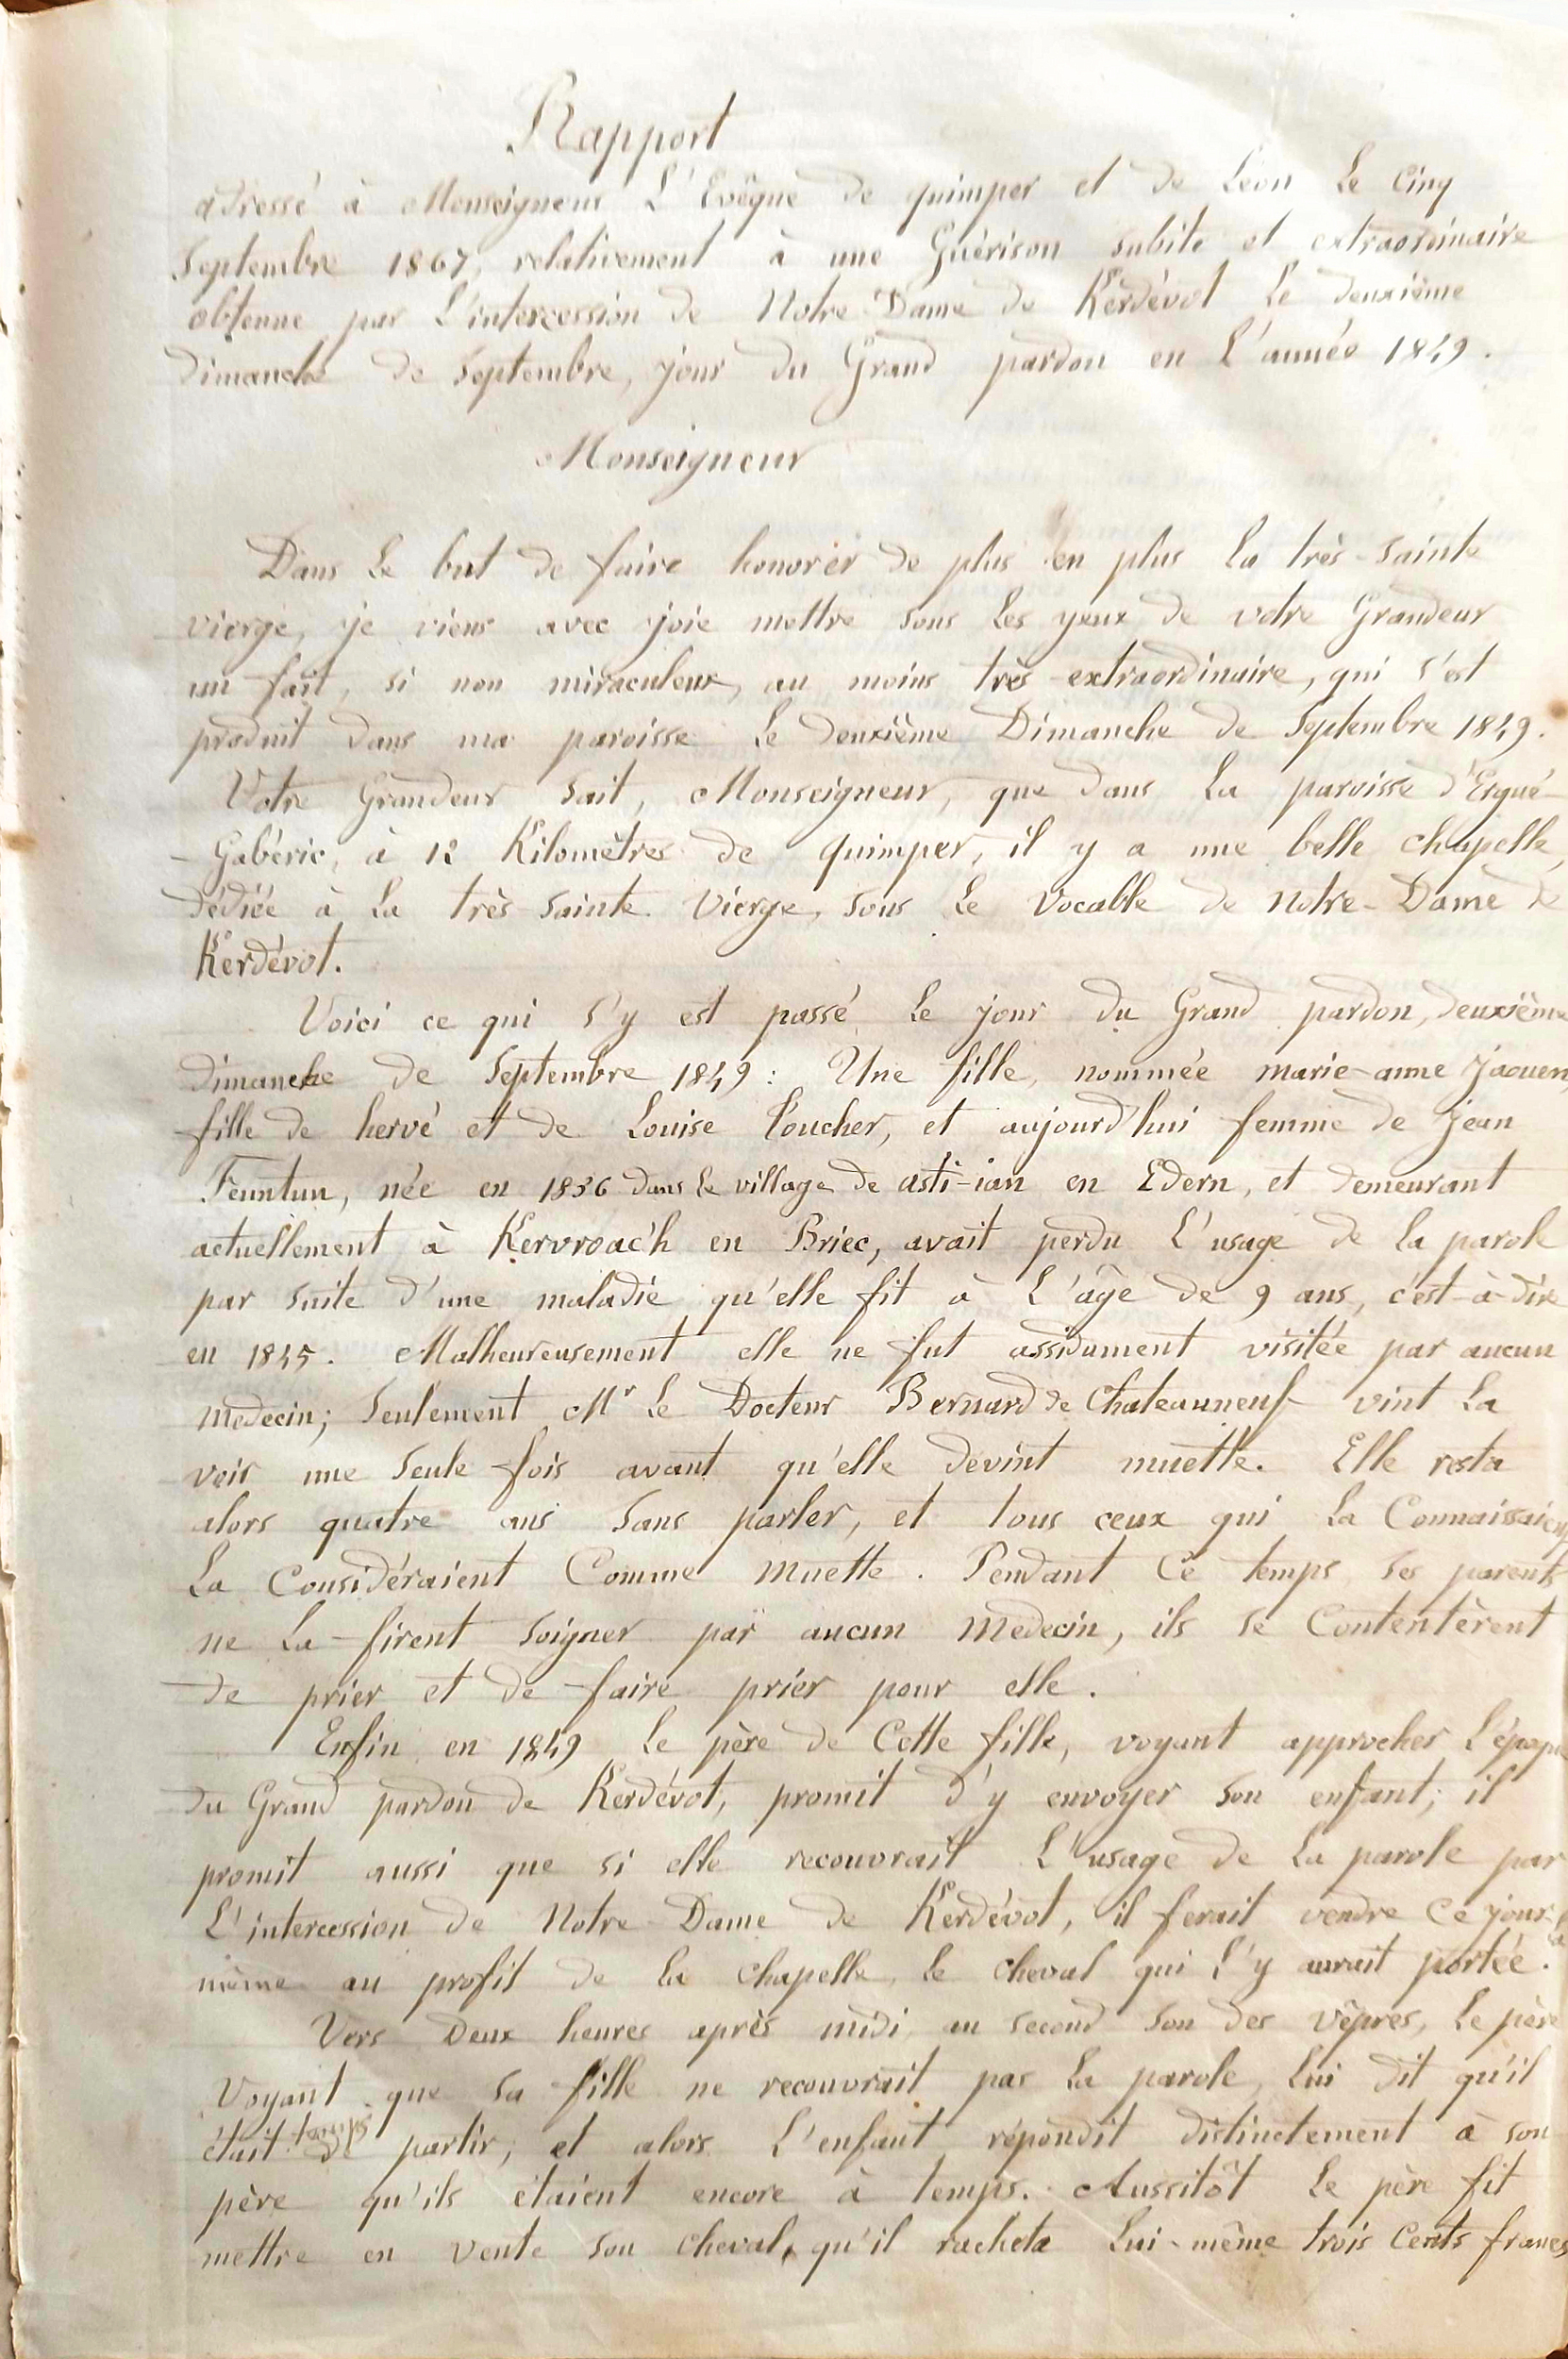 Rapport
adressé à Monseigneur L'Evêque de quimper et de Léon Le Cinq
Septembre 1867, relativement à une Guérison subite et extraordinaire
obtenue par L'intercession de Notre-Dame de Kerdévot Le deuxième
dimanche de Septembre, jour du Grand pardon en L'année 1849.
Monseigneur
Dans Le but de faire honorer de plus en plus La très-Sainte
vierge, je viens avec joie mettre sous Les yeux de votre Grandeur
un fait, si non miraculeux, au moins très-extraordinaire, qui s'est
produit dans ma paroisse Le deuxième Dimanche de Septembre 1849.
Votre Grandeur Sait, Monseigneur, que dans La paroisse d'Ergué-
- Gabéric, à 12 Kilomètres de quimper, il y a une belle chapelle,
dédiée à La très-Sainte Vierge, Sous Le Vocable de Notre-Dame de
Kerdévot.
Voici ce qui s'y est passé Le jour du Grand pardon, deuxième
dimanche de Septembre 1849: Une fille, nommée marie-anne Jaouen
fille de hervé et de Louise Coucher, et aujourd'hui femme de jean
Feuntun, née en 1836 dans Le village de asti-ian en Edern, et demeurant
actuellement à Kervroac'h en Briec, avait perdu L'usage de La parole
par Suite d'une maladie qu'elle fit à L'âge de 9 ans, c'est-à-dire
en 1845. Malheureusement elle ne fut assidument visitée par aucun
medecin; Seulement Mr Le Docteur Bernard de Chateauneuf vint La
voir une Seule fois avant qu'elle devint muette. Elle resta
alors quatre ans Sans parler, et tous ceux qui La
La Considéraient Comme muette. Pendant Ce temps Ses parents
ne La firent Soigner par aucun Medecin, ils se Contentèrent
de prier et de faire prier pour elle.
Enfin en 1849 Le père de Cette fille, voyant approcher
du Grand pardon de Kerdévot, promit d'y envoyer Son enfant; il
promit aussi que si elle recouvrait L'usage de La parole par
L'intercession de Notre-Dame de Kerdévot, il ferait vendre Ce jour-là
même au profit de La Chapelle, Le Cheval qui L'y aurait portée.
Vers Deux heures après midi, au Second Son des Vêpres, Le père
Voyant que Sa fille ne recouvrait pas La parole, Lui dit qu'il
était temps de partir, et alors L'enfant répondit distinctement à Son
père qu'ils étaient encore à temps. Aussitôt Le père fit
mettre en Vente Son Cheval, qu'il racheta Lui-même trois Cents francs